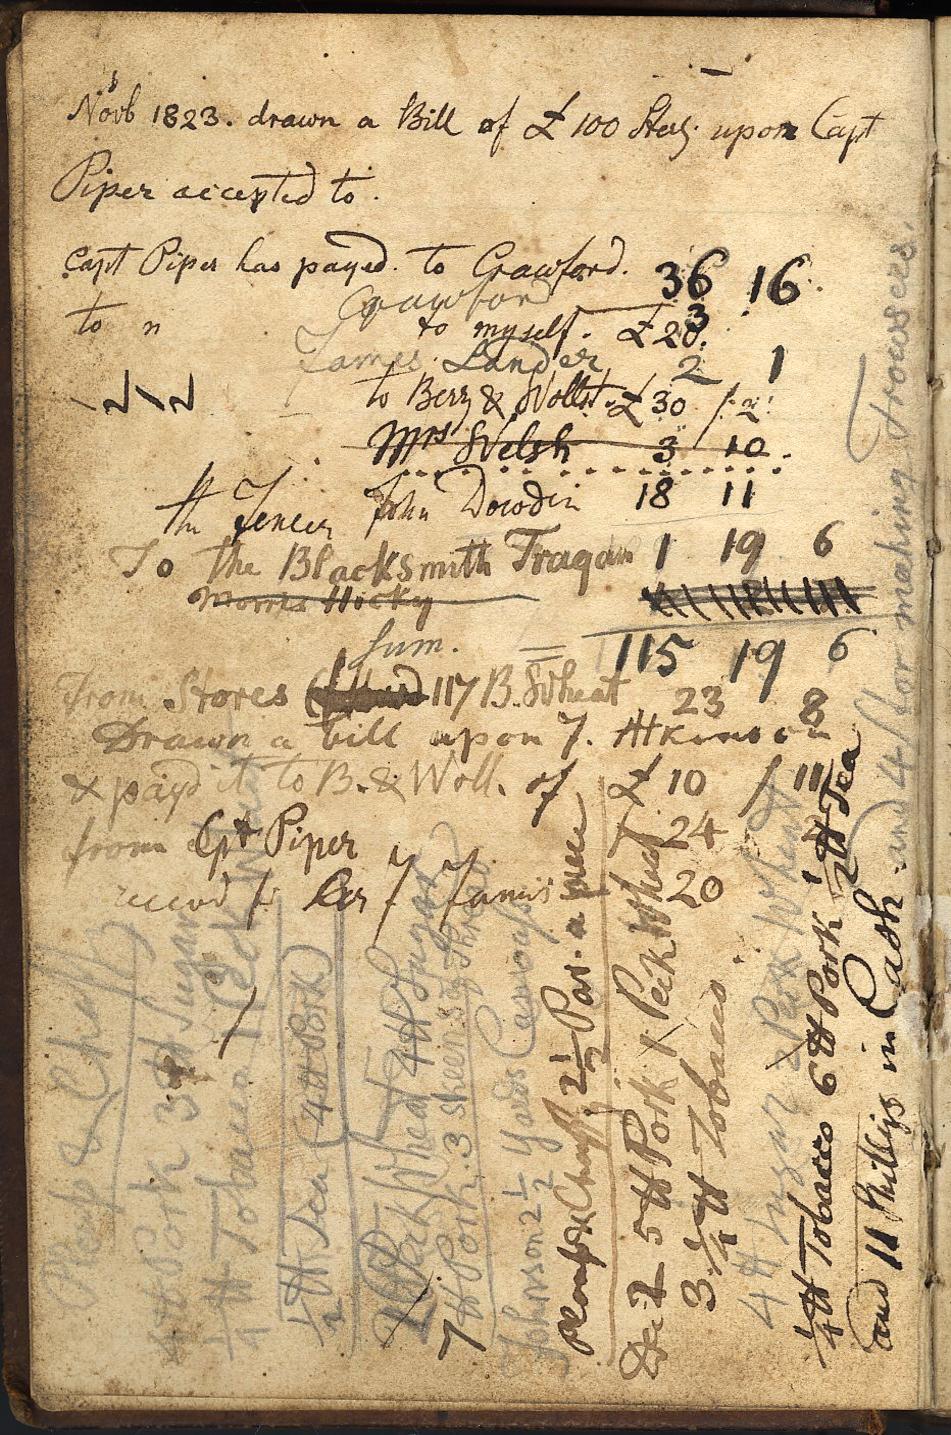 Novb 1823. drawn a Bill of £ 100 Sterg. upon Capt
Piper accepted to.
Capt Piper has payed. to Crawford. 36 16
Crawford 3
to n to myself. £ 20.
James Lander 2 1
to Berry & Wollst. £ 30 / 2
Mrs Welsh 3 10
th Fencer John 18 11
To the Blacksmith Tragan 1 19 6
Morris Hocky
Sum. = 115 19 6
From Stores 117 B. Wheat 23 8
Drawn a bill upon J. Atkinson
& payd it to B. & Woll. of £ 10 / 11
from Cpt Piper 24
20
Plomp & Chaff
Pork 3 ℔ Sugar
¼ ℔ Tobacco 1 Peck Wheat
½ ℔ Tea (4 ℔ Pork)
Peck Wheat 4 ℔ Sugar
7 ℔ Pork. 3 skeens Thread
Johnson 2 ½ Yards Canvass
Plomp & Chaff. 2 ½ Par. a
Dec 2 5 ℔ Pork 1 Peck Wheat
3 ¼ ℔ Tobacco
4 ℔ Sugar 2 Peck Wheat
¼ ℔ Tobacco 6 ℔ Pork ℔ Tea
and 11 Shillgs in Cash. and 4/ for making Trowsers.